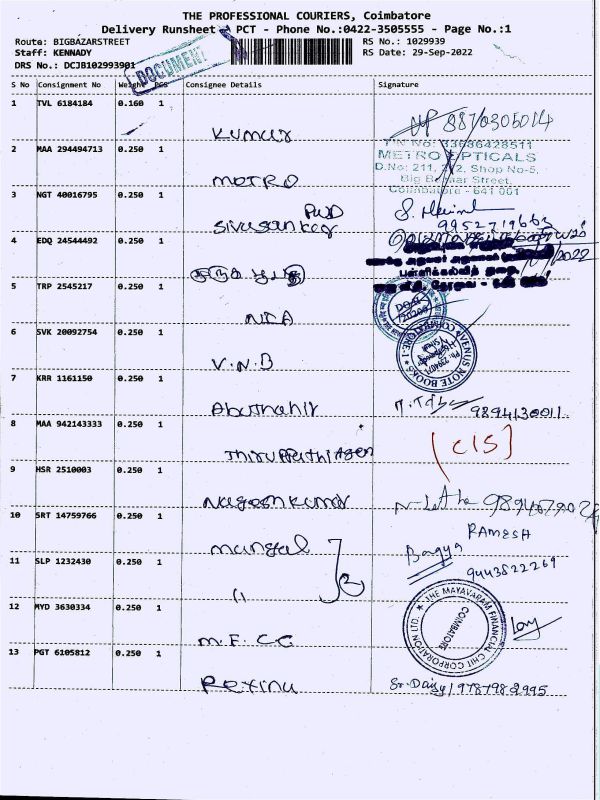 THE PROFESSIONAL COURIERS, Coimbatore
Delivery Runsheet PCT - Phone No.:0422-3505555 - Page No.:1
Route: BIGBAZARSTREET RS No.: 1029939
Staff: KENNADY RS Date: 29-Sep-2022
DRS No.: DCJB102993901
DOCUMENT
S No Consignment No Weight PCS Consignee Details Signature
1 TVL 6184184 0.160 1 Kumar 8870305014
2 MAA 294494713 0.250 1 METRO
TIN No: 33686428511
METRO OPTICALS
D.No: 211, 212, Shop No-5,
Big Bazaar Street,
Coimbatore - 641 001
3 NGT 40016795 0.250 1 Sivasankar PWD
4 EDQ 24544492 0.250 1
பள்ளிக்கல்வித் துறை,
5 TRP 2545217 0.250 1
6 SVK 20092754 0.250 1 V.N.B
VENUS NOTE BOOKS COIMBATORE-1
7 KRR 1161150 0.250 1 Abuthahir 9894130011
8 MAA 942143333 0.250 1 Thiruppathi Agen (CIS)
9 HSR 2510003 0.250 1 Nageshkumar
10 SRT 14759766 0.250 1 mangal RAMESH
Bagya
9443522269
11 SLP 1232430 0.250 1 "
12 MYD 3630334 0.250 1 M.F.CC
THE MAYAVARAM FINANCIAL CHIT CORPORATION LTD.
COIMBATORE
13 PGT 6105812 0.250 1 Rexinu Sr. Daisy / 9787982995